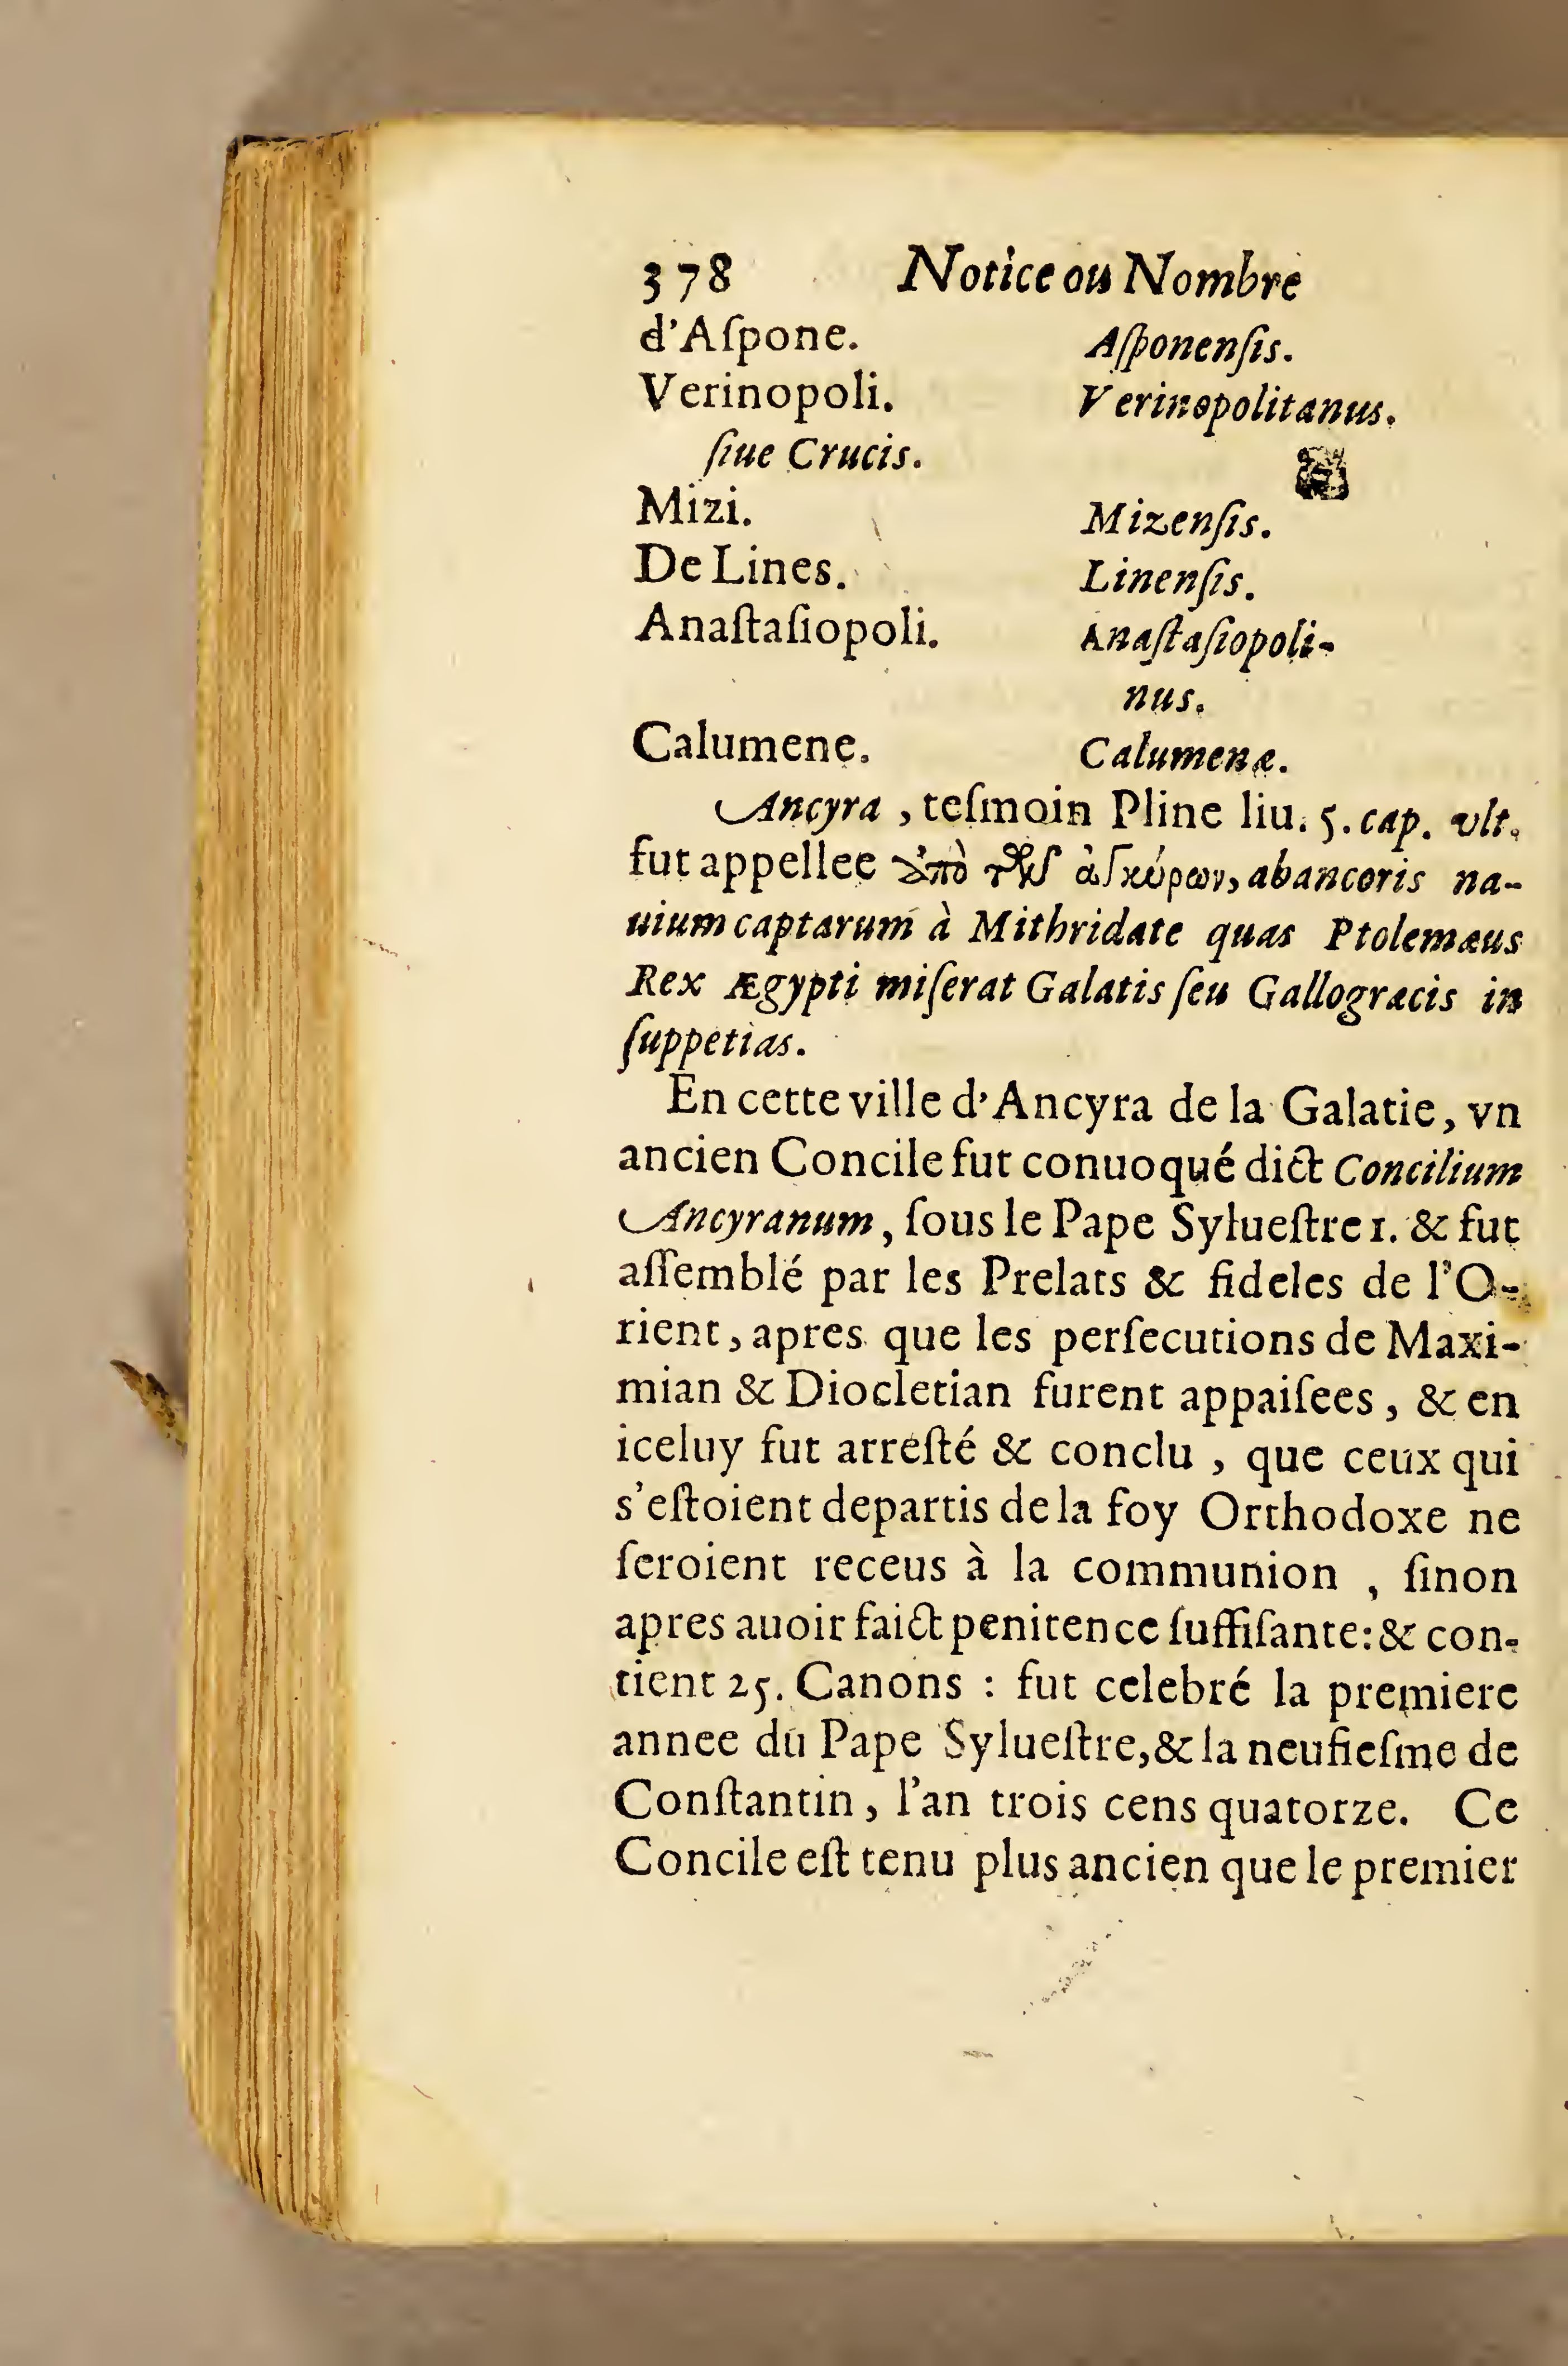 378 Notice ou Nombre
d'Aſpone. Aſponenſis.
Verinopoli. Verinopolitanus.
ſiue Crucis.
Mizi. Mizenſis.
De Lines. Linenſis.
Anaſtaſiopoli. Anaſtaſiopoli-
nus.
Calumene. Calumenæ.
Ancyra, teſmoin Pline liu. 5. cap. vlt.
fut appellee ἀπὸ τῶν ἀγκύρων, ab ancoris na-
uium captarum à Mithridate quas Ptolemæus
Rex Ægypti miſerat Galatis ſeu Gallogræcis in
ſuppetias.
En cette ville d'Ancyra de la Galatie, vn
ancien Concile fut conuoqué dict Concilium
Ancyranum, ſous le Pape Sylueſtre 1. & fut
aſſemblé par les Prelats & fideles de l'O-
rient, apres que les perſecutions de Maxi-
mian & Diocletian furent appaiſees, & en
iceluy fut arreſté & conclu, que ceux qui
s'eſtoient departis de la foy Orthodoxe ne
ſeroient receus à la communion, ſinon
apres auoir faict penitence ſuffiſante: & con-
tient 25. Canons : fut celebré la premiere
annee du Pape Sylueſtre, & la neufieſme de
Conſtantin, l'an trois cens quatorze. Ce
Concile eſt tenu plus ancien que le premier